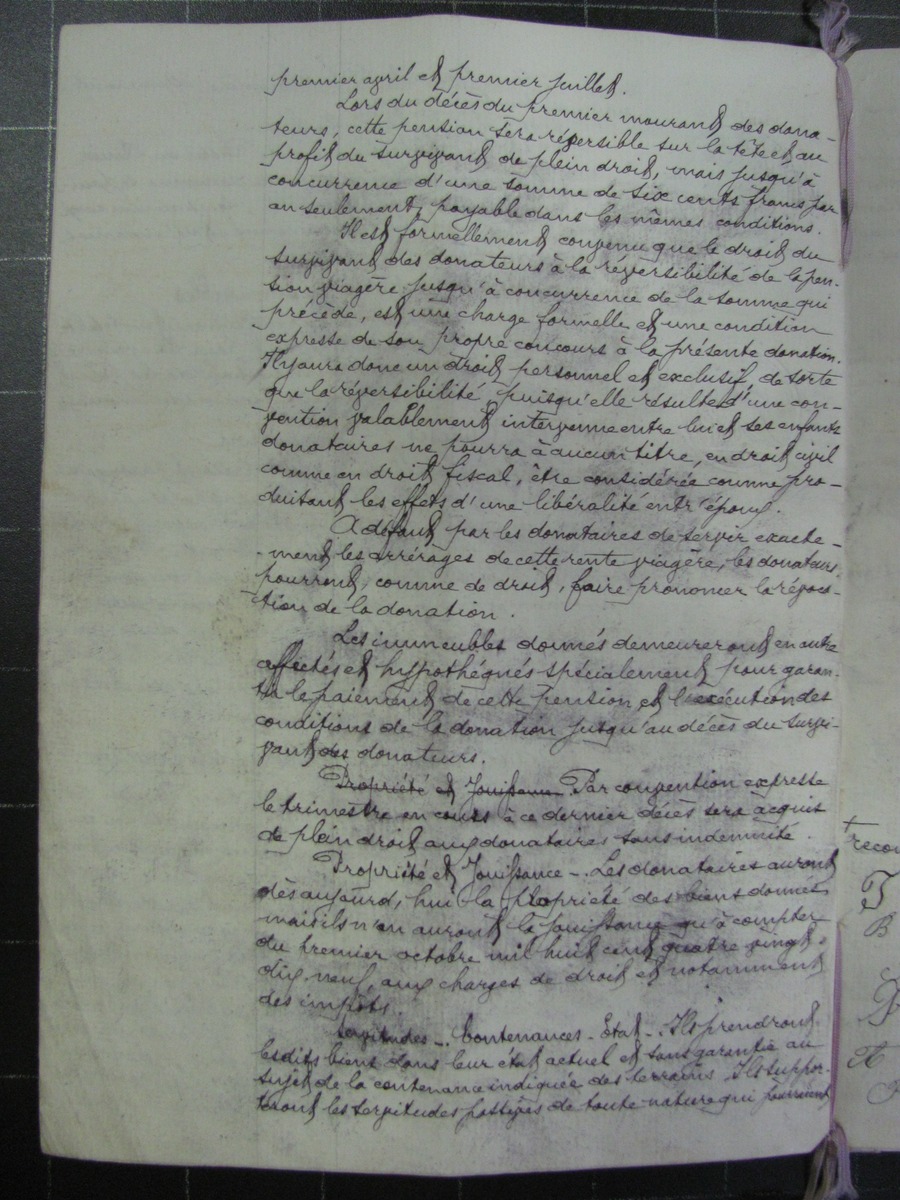 premier avril et premier juillet.
Lors du décès du premier mourant des dona-
teurs, cette pension sera réversible sur la tête et au
profit du survivant de plein droit, mais jusqu'à
concurrence d'une somme de six cents francs par
an seulement, payable dans les mêmes conditions.
Il est formellement convenu que le droit du
survivant des donateurs à la réversibilité de la pen-
sion viagère jusqu'à concurrence de la somme qui
précède, est une charge formelle et une condition
expresse de son propre concours à la présente donation.
Il y aura donc un droit personnel et exclusif, de sorte
que la réversibilité, puisqu'elle résulte d'une con-
vention valablement intervenue entre lui et ses enfants
donataires ne pourra à aucun titre, en droit civil
comme en droit fiscal, être considérée comme pro-
duisant les effets d'une libéralité entr'époux.
A défaut par les donataires de servir exacte-
-ment les arrérages de cette rente viagère, les donateurs
pourront, comme de droit, faire prononcer la révoca-
tion de la donation.
Les immeubles donnés demeureront en outre
affectés et hypothéqués spécialement pour garan-
tir le paiement de cette pension et l'exécution des
conditions de la donation jusqu'au décès du survi-
vant des donateurs.
Propriété et Jouissance Par convention expresse
le trimestre en cours à ce dernier décès sera acquis
de plein droit aux donataires sans indemnité.
Propriété et Jouissance -. Les donataires auront
dès aujourd'hui la propriété des biens donnés
mais ils n'en auront la jouissance qu'à compter
du premier octobre mil huit cent quatre vingt-
dix-neuf, aux charges de droit et notamment
des impôts.
Servitudes -. Contenances - Etat -. Ils prendront
lesdits biens dans leur état actuel et sans garantie au
sujet de la contenance indiquée des terrains. Ils suppor-
teront les servitudes passives de toute nature qui pourraient